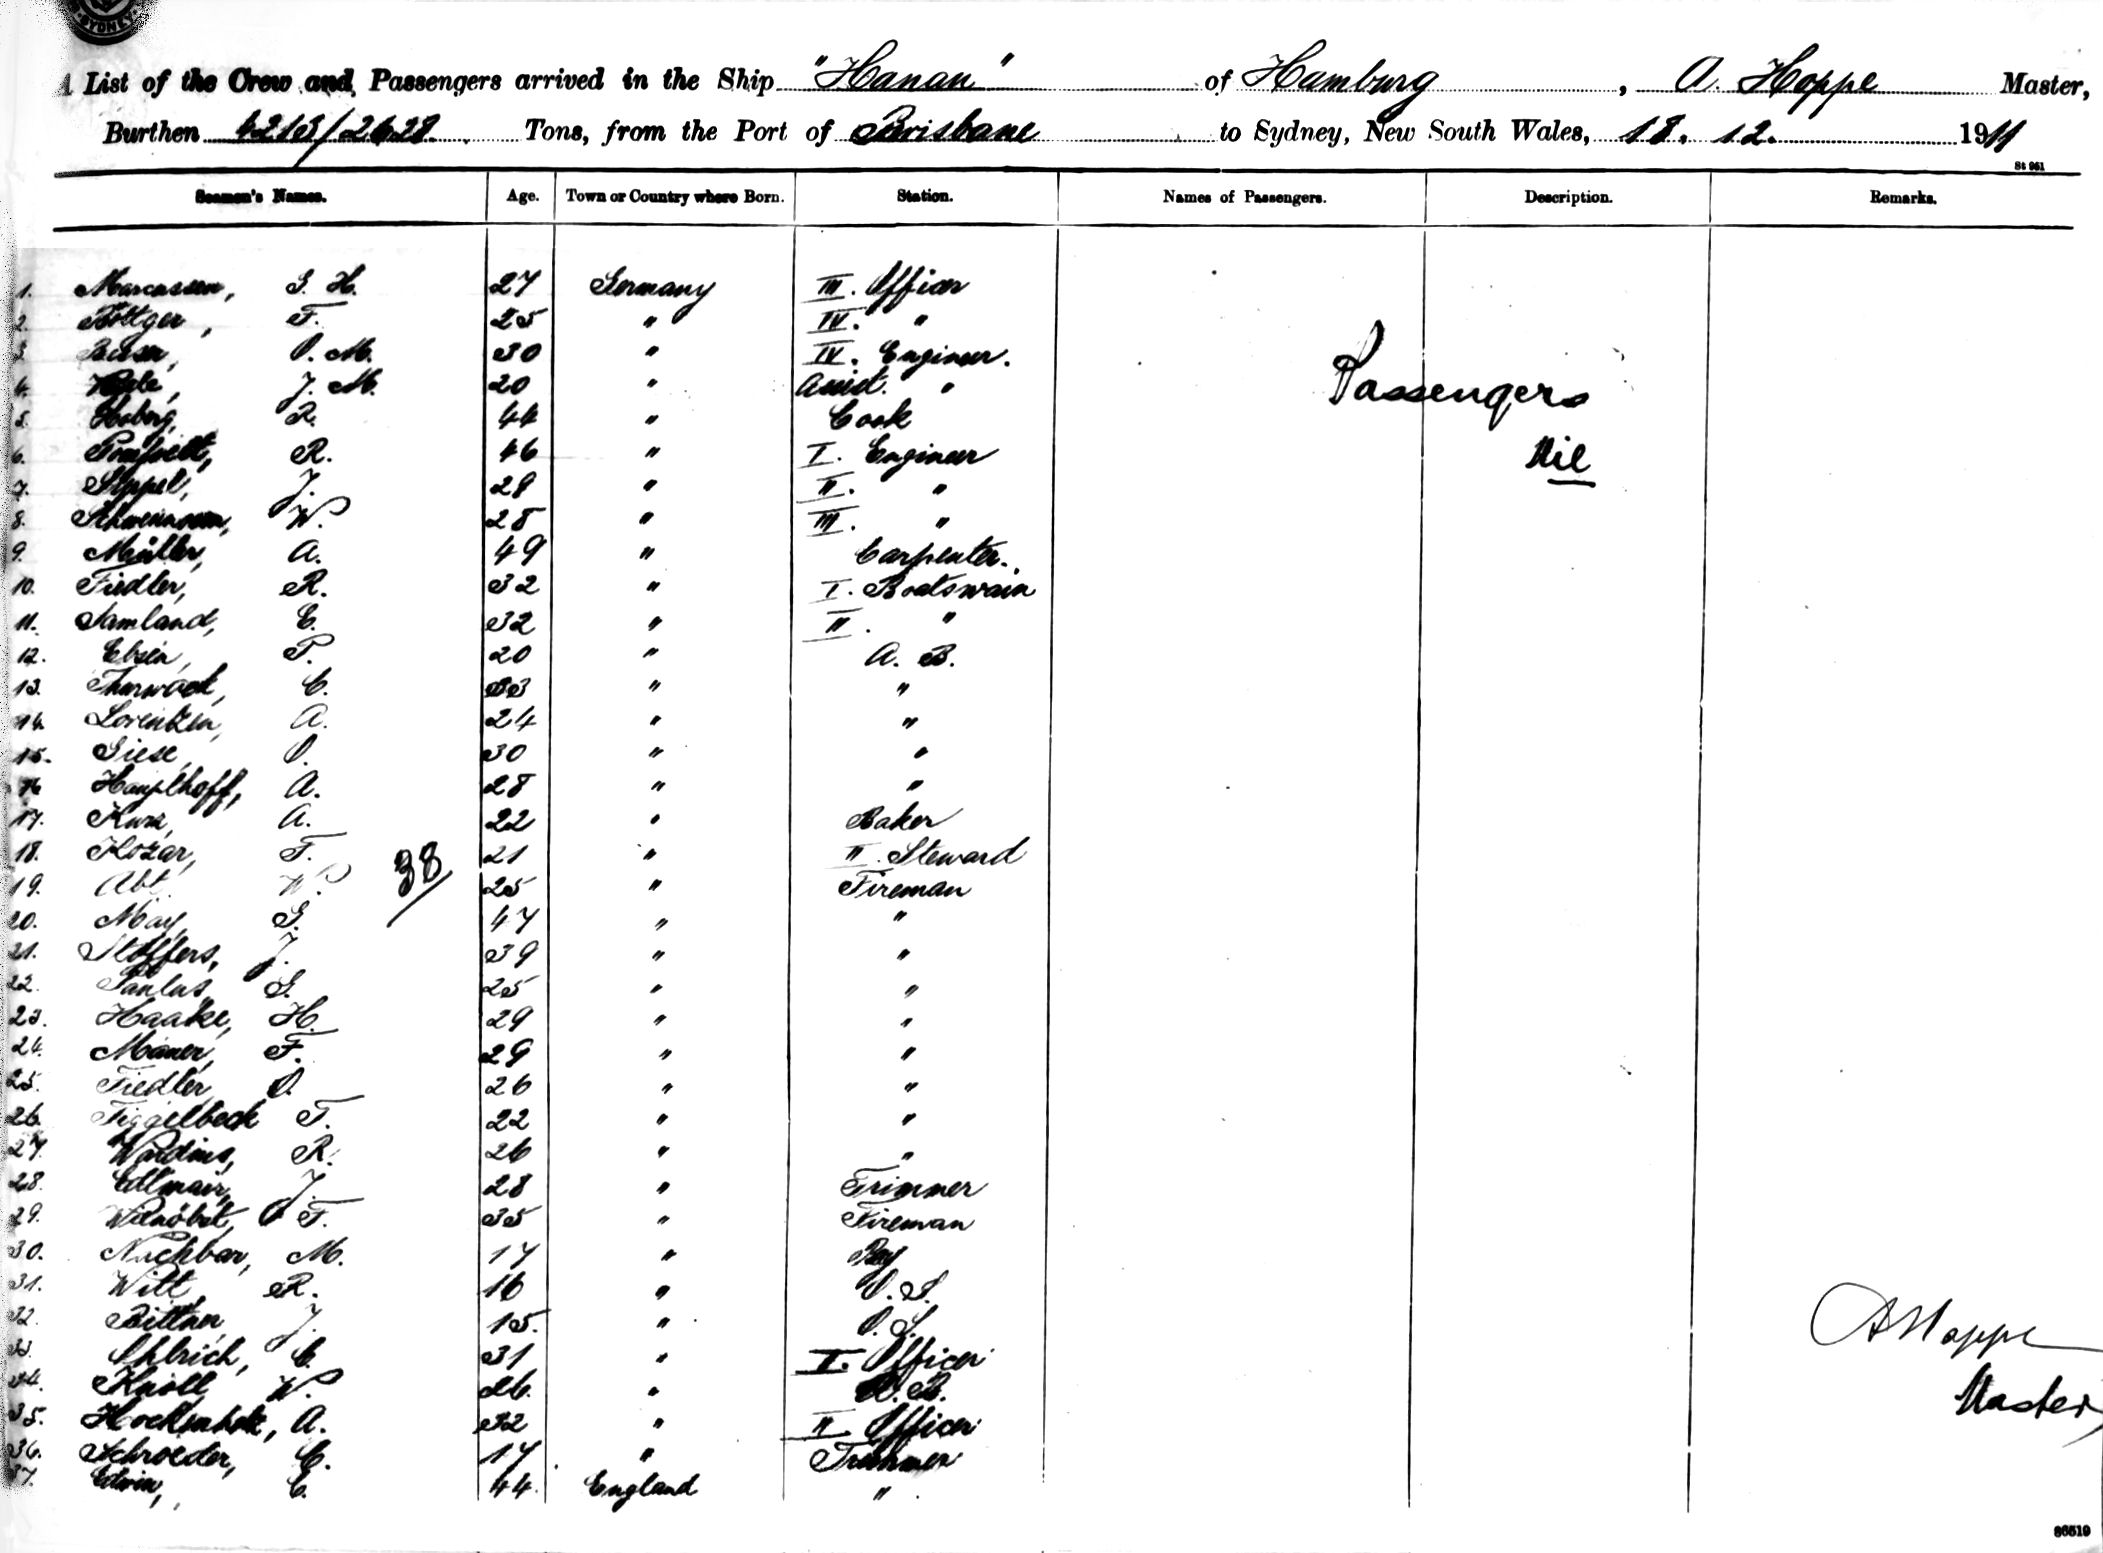 SYDNEY
A List of the Crew and Passengers arrived in the Ship "Hanau" of Hamburg, A. Hoppe Master,
Burthen 4213/2628 Tons, from the Port of Brisbane to Sydney, New South Wales, 18. 12. 1911
St 961
Seamen's Names. Age. Town or Country where Born. Station. Names of Passengers. Description. Remarks.
1. Marcussen, G. H. 27 Germany III. Officer
2. Böttger, F. 25 " IV. "
3. O. M. 30 " IV. Engineer.
4. J. M. 20 " Assist. "
5. R. 44 " Cook
Passengers
Nil
6. R. 46 " I. Engineer
7. Sippel, J. 29 " II. "
8. W. 28 " III. "
9. Müller, A. 49 " Carpenter.
10. Fiedler, R. 32 " I. Boatswain
11. Samland, E. 32 " II. "
12. Ebsen, P. 20 " A. B.
13. C. 33 " "
14. Lorentzen, A. 24 " "
15. Giese, O. 30 " "
16. Haupthoff, A. 28 " "
17. Kurz, A. 22 " Baker
18. Kozar, F. 21 " II. Steward
38/
19. Abt, W. 25 " Fireman
20. May, G. 47 " "
21. Stoffers, J. 39 " "
22. Paulus, G. 25 " "
23. Haake, H. 29 " "
24. F. 29 " "
25. Fiedler, O. 26 " "
26. Figgelbeck F. 22 " "
27. R. 26 " "
28. Edlmair, J. 28 " Trimmer
29. F. 35 " Fireman
30. Nachbar, M. 17 " Boy
31. Witt, R. 16 " O. S.
32. Bittner, J. 15. " O. S.
33. C. 31 " I. Officer
34. Knoll, W. 26. " A. B.
35. A. 32 " II. Officer
36. Schroeder, C. 17 " Trimmer
37. Edwin, C. 44. England "
A Hoppe
Master
86519